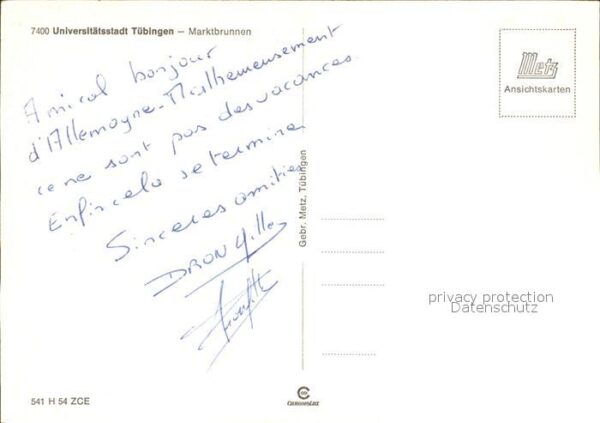 7400 Universitätsstadt Tübingen — Marktbrunnen
Amical bonjour
d'Allemagne - Malheureusement
ce ne sont pas des vacances.
Enfin cela se termine
Sinceres amitiés
DRON Gilles
Metz
Ansichtskarten
Gebr. Metz, Tübingen
privacy protection
Datenschutz
541 H 54 ZCE